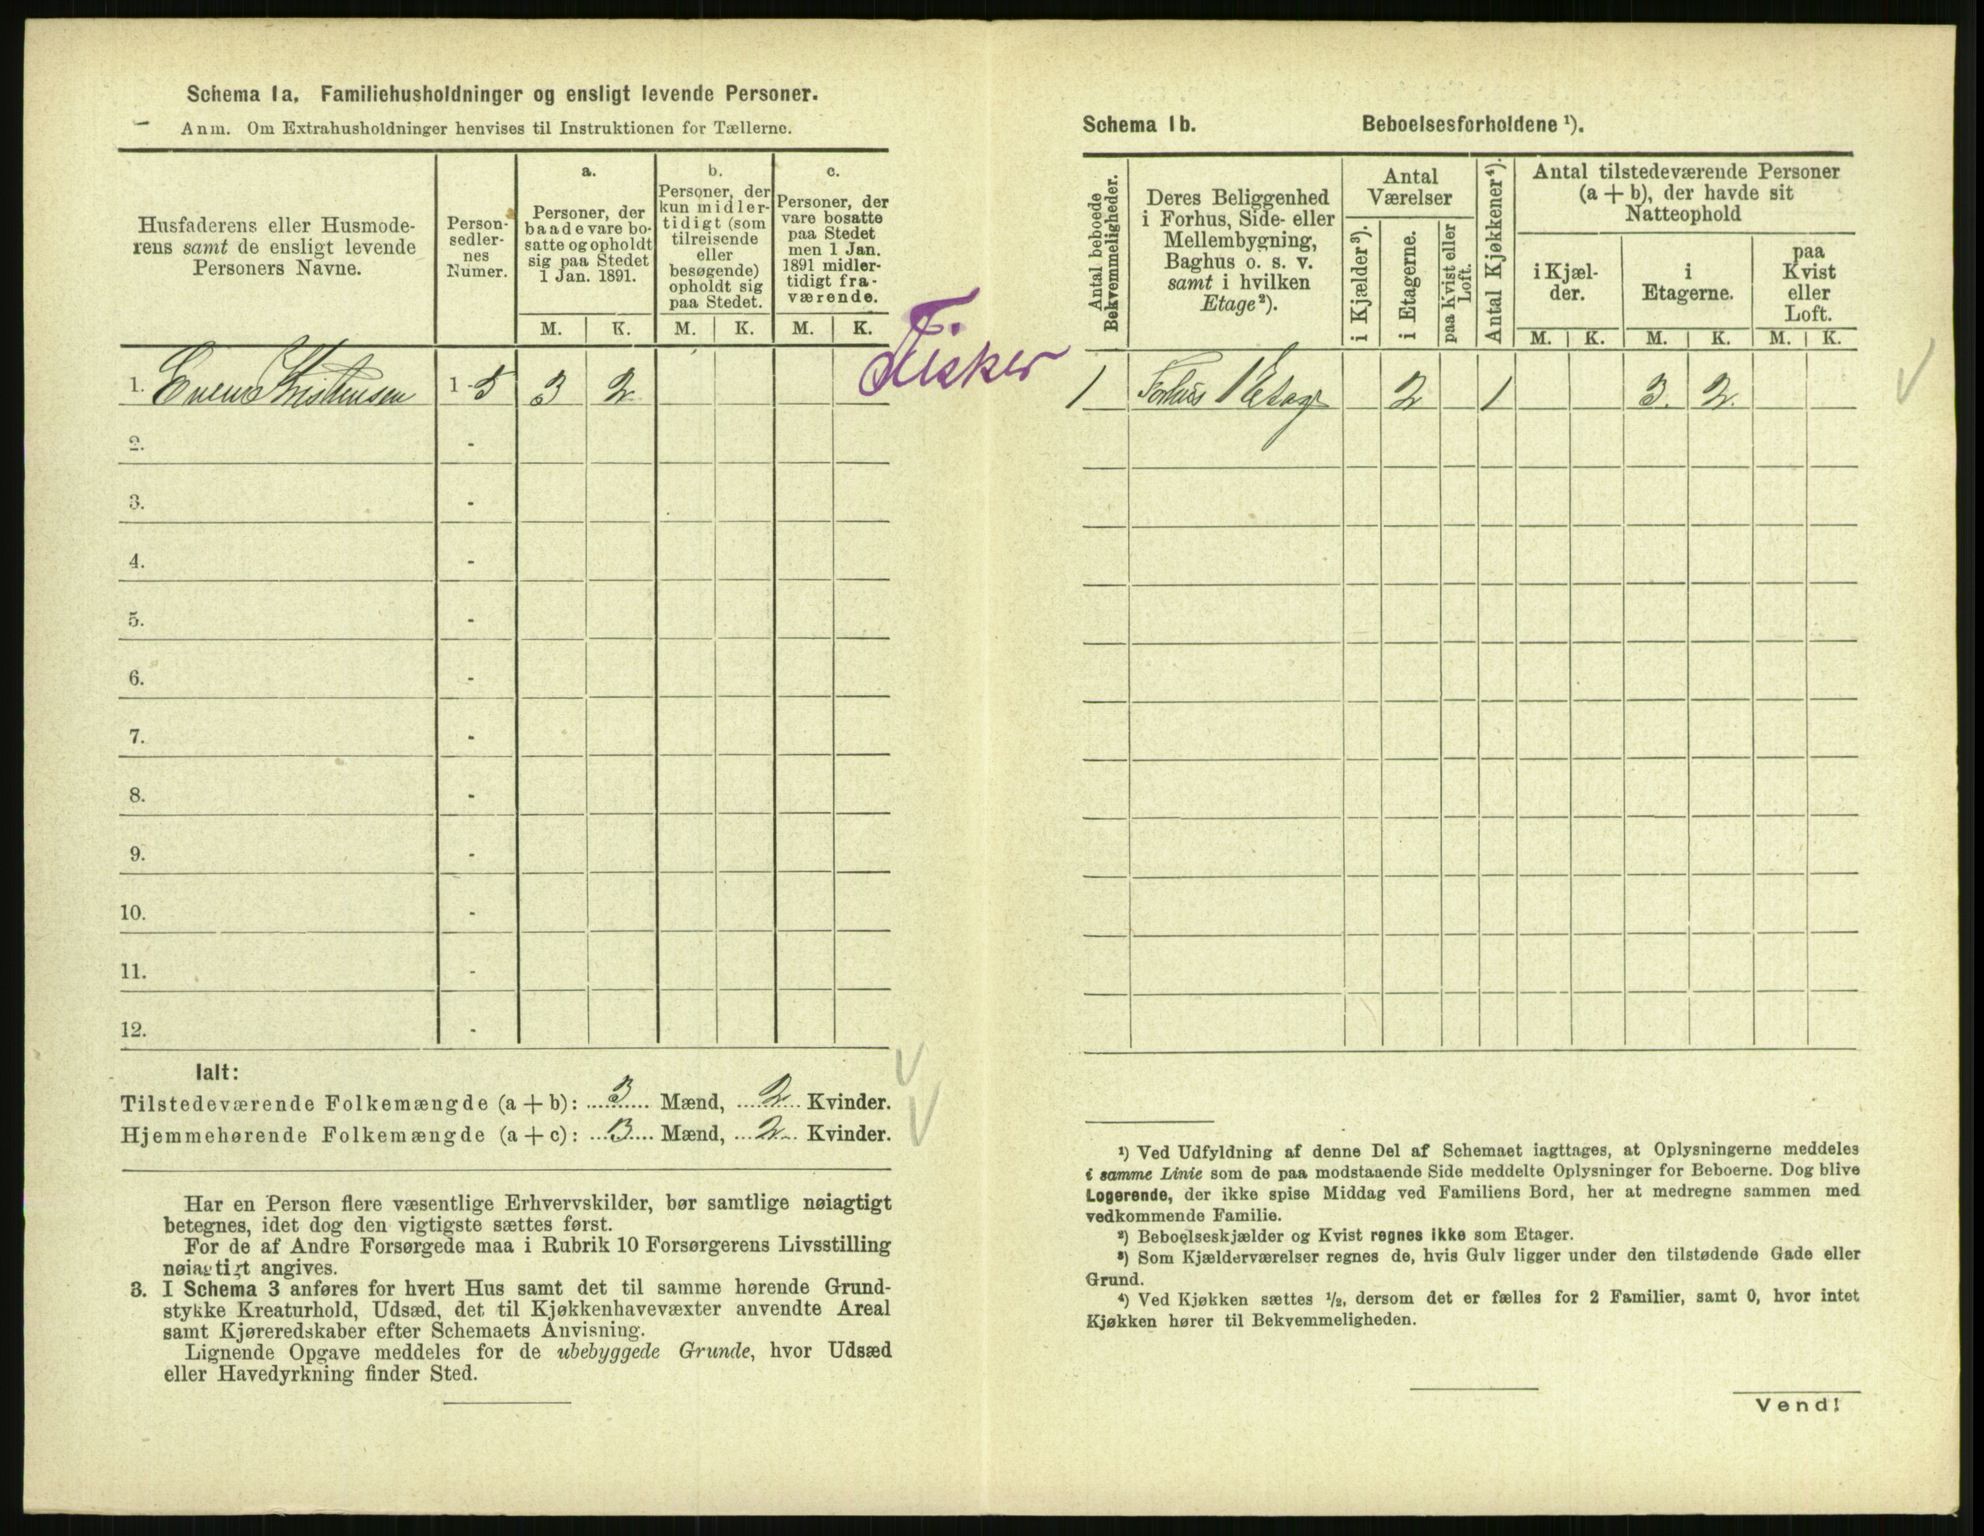 Schema 1a. Familiehusholdninger og ensligt levende Personer.
Anm. Om Extrahusholdninger henvises til Instruktionen for Tællerne.
Husfaderens eller Husmode-
rens samt de ensligt levende
Personers Navne.
Person-
sedler-
nes
Numer.
a.
Personer, der
baade vare bo-
satte og opholdt
sig paa Stedet
1 Jan. 1891.
b.
Personer, der
kun midler-
tidigt (som
tilreisende
eller
besøgende)
opholdt sig
paa Stedet.
c.
Personer, der
vare bosatte
paa Stedet
men 1 Jan.
1891 midler-
tidigt fra-
værende.
M. K. M. K. M. K.
1. Even Kristensen 1 - 5 3 2
F.
Fisker
2. -
3. -
4. -
5. -
6. -
7. -
8. -
9. -
10. -
11. -
12. -
Ialt:
Tilstedeværende Folkemængde (a + b): 3 Mænd, 2 Kvinder.
Hjemmehørende Folkemængde (a + c): 3 Mænd, 2 Kvinder.
Har en Person flere væsentlige Erhvervskilder, bør samtlige nøiagtigt
betegnes, idet dog den vigtigste sættes først.
For de af Andre Forsørgede maa i Rubrik 10 Forsørgerens Livsstilling
nøiagtigt angives.
3. I Schema 3 anføres for hvert Hus samt det til samme hørende Grund-
stykke Kreaturhold, Udsæd, det til Kjøkkenhavevæxter anvendte Areal
samt Kjøreredskaber efter Schemaets Anvisning.
Lignende Opgave meddeles for de ubebyggede Grunde, hvor Udsæd
eller Havedyrkning finder Sted.
Schema 1b. Beboelsesforholdene ¹).
Antal beboede
Bekvemmeligheder.
Deres Beliggenhed
i Forhus, Side- eller
Mellembygning,
Baghus o. s. v.
samt i hvilken
Etage²).
Antal
Værelser
i Kjælder³).
i Etagerne.
paa Kvist eller
Loft.
Antal Kjøkkener⁴).
Antal tilstedeværende Personer
(a + b), der havde sit
Natteophold
i Kjæl-
der.
i
Etagerne.
paa
Kvist
eller
Loft.
M. K. M. K. M. K.
1 Forhus 1 Etage 2 1 3. 2.
¹) Ved Udfyldning af denne Del af Schemaet iagttages, at Oplysningerne meddeles
i samme Linie som de paa modstaaende Side meddelte Oplysninger for Beboerne. Dog blive
Logerende, der ikke spise Middag ved Familiens Bord, her at medregne sammen med
vedkommende Familie.
²) Beboelseskjælder og Kvist regnes ikke som Etager.
³) Som Kjælderværelser regnes de, hvis Gulv ligger under den tilstødende Gade eller
Grund.
⁴) Ved Kjøkken sættes ½, dersom det er fælles for 2 Familier, samt 0, hvor intet
Kjøkken hører til Bekvemmeligheden.
Vend!